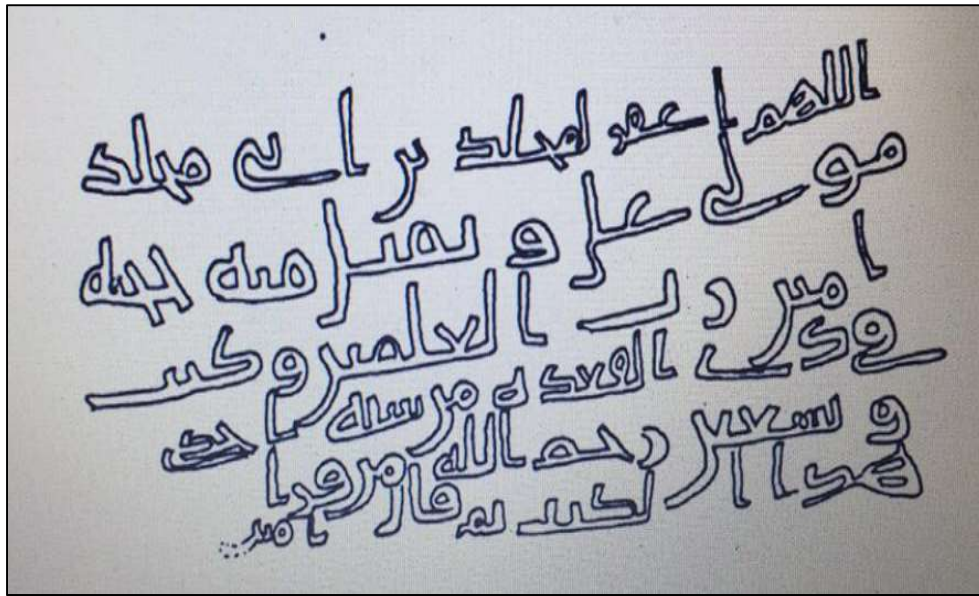 اللهم اغفر لمخلد بن ابي مخلد
مولى علي و تقبل منه حجه
امين رب العلمين وكتب
في ذي القعده من سنه احدى
و تسعين رحم الله من قرا
هذا الكتب ثم قال امين